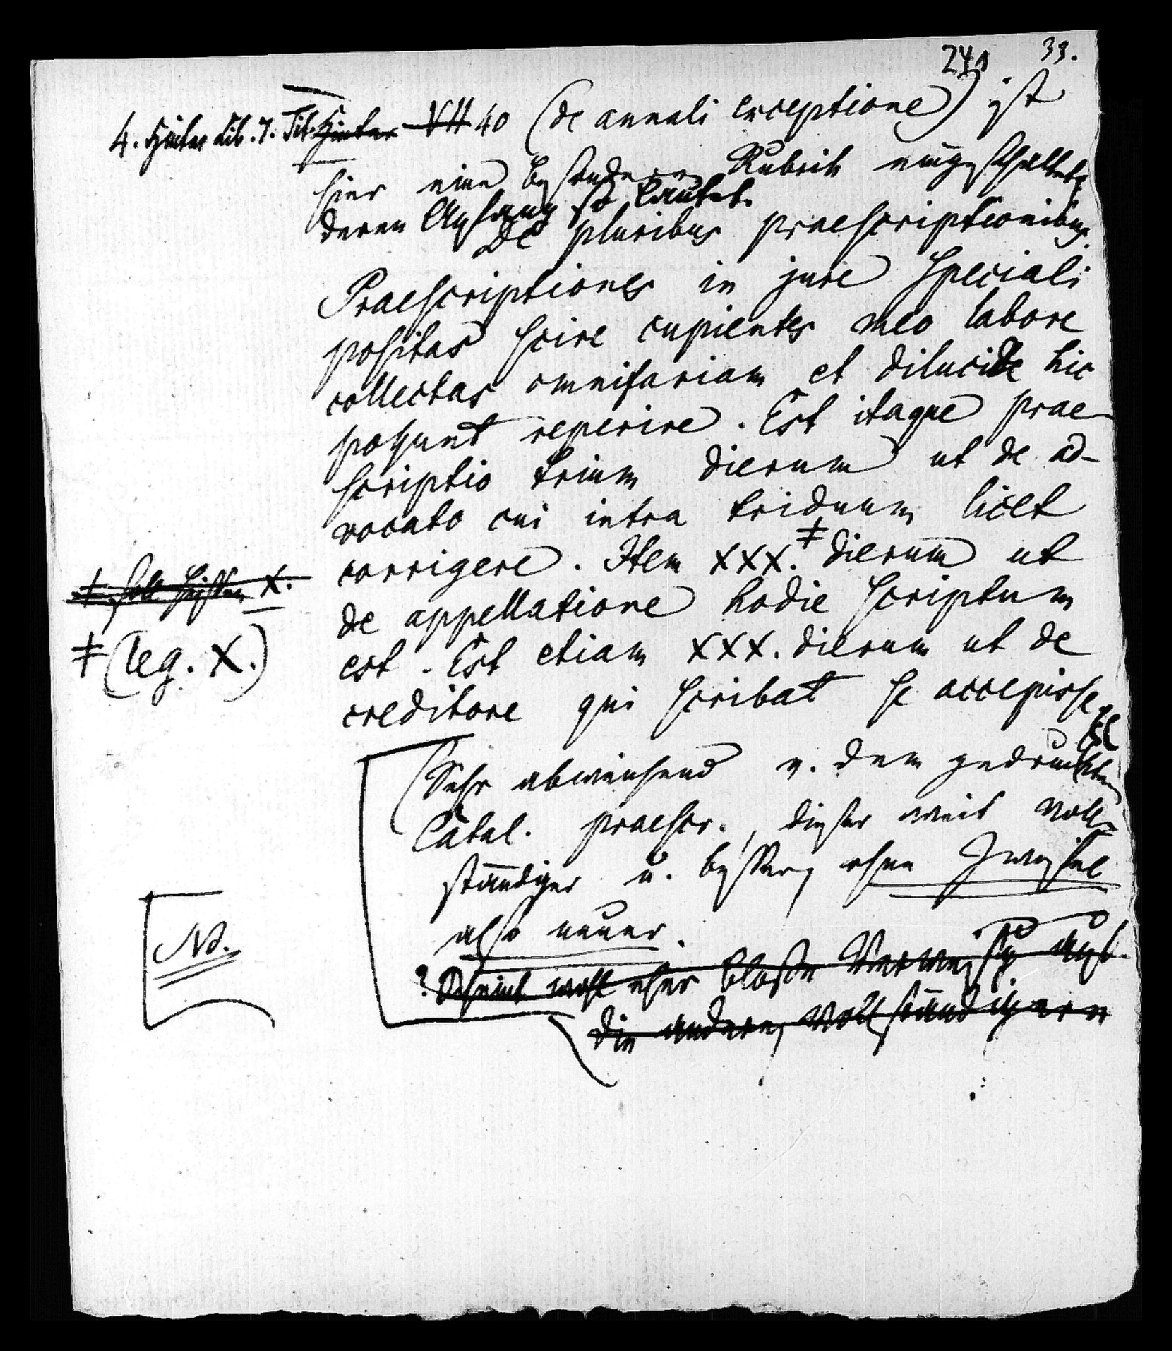 240 33.
4. Hinter Lib. 7. Tit. Hinter VII 40 (de annali exceptione) ist
hier eine besondere Rubrik eingeschaltet,
deren Anfang so lautet.
De pluribus praescriptionibus.
Praescriptiones in jure speciali
positas scire cupientes meo labore
collectas omnifariam et dilucide hic
possunt reperire. Est itaque prae
scriptio trium dierum ut de ad-
vocato cui intra triduum licet
corrigere. Item XXX.‡ dierum ut
de appellatione hodie scriptum
est. Est etiam XXX. dierum ut de
creditore qui scribat se accepisse etc
‡ soll heißen X.
‡ (leg. X.)
(Sehr abweichend v. dem gedruckten
Catal. praescr., dieser weit voll-
ständiger u. besser, ohne Zweifel
also neuer.
? Scheint wohl eher bloße Verweisg auf
die andere, vollständigere
NB.